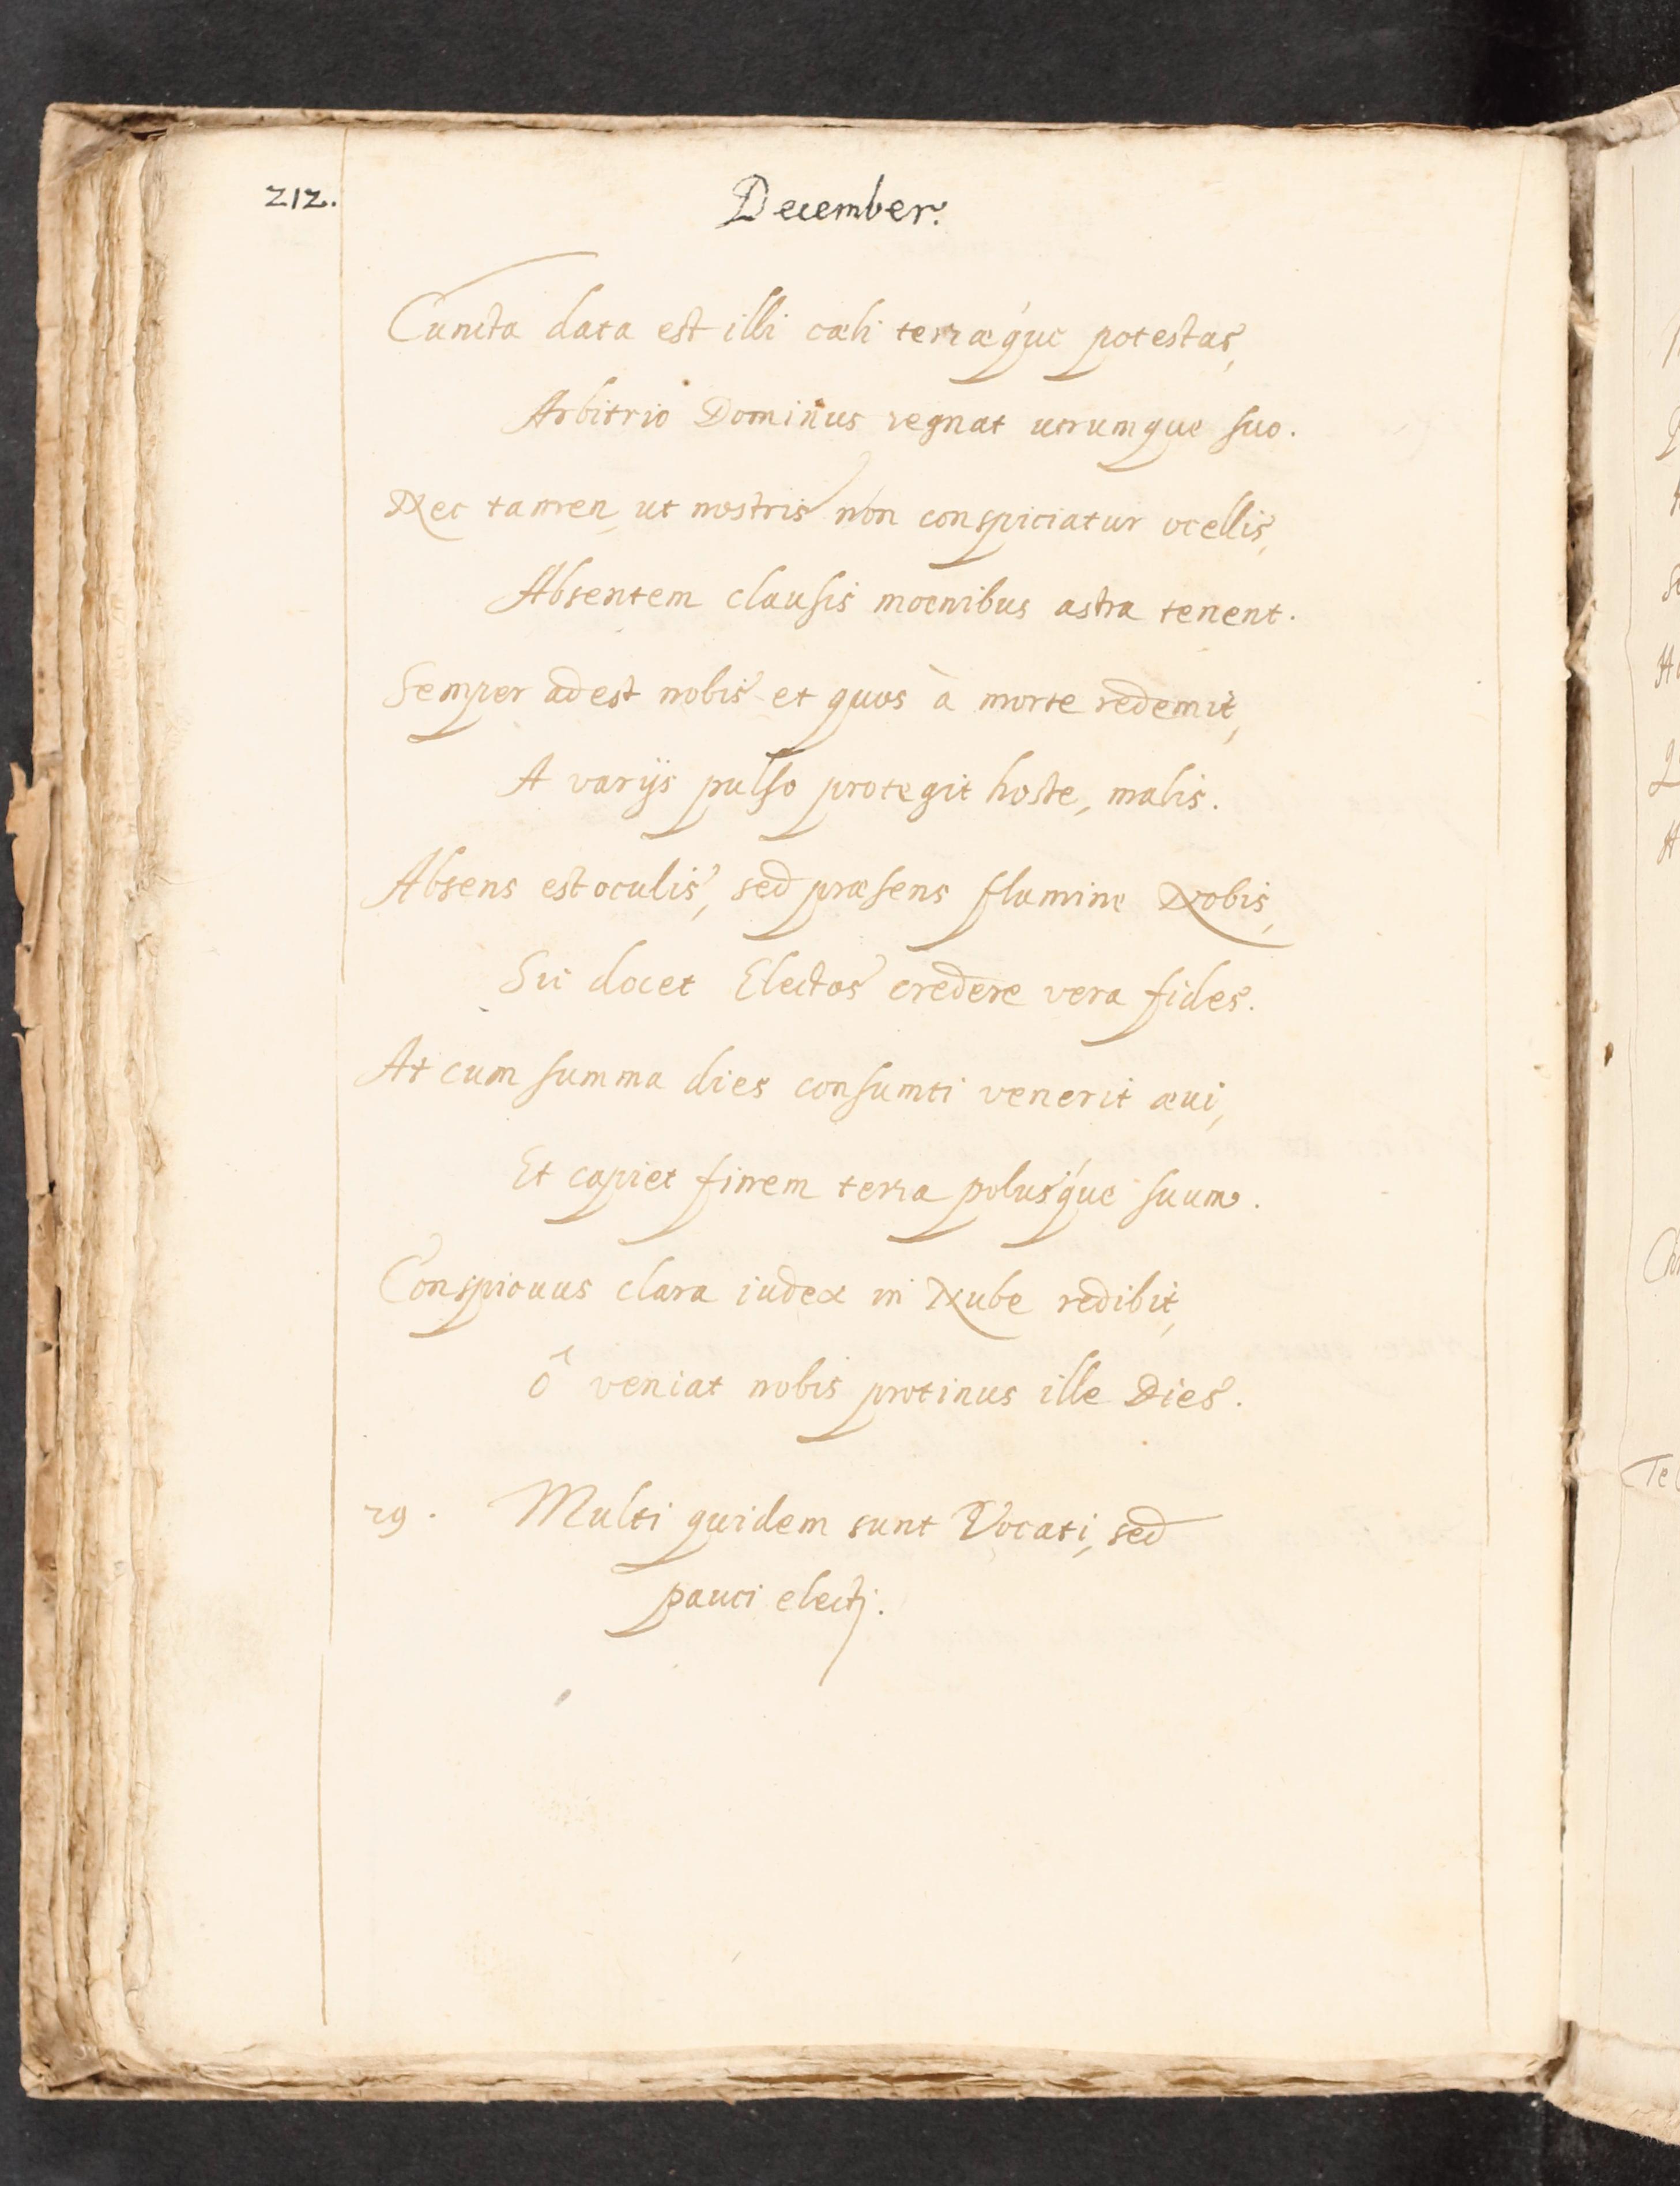 212.
December.
Cuncta data est illi cæli terræq́ue potestas,
Arbitrio Dominus regnat utrumque suo.
Nec tamen, ut nostris non conspiciatur ocellis,
Absentem clausis moenibus astra tenent.
Semper adest nobis et quos à morte redemit,
A varijs pulso protegit hoste, malis.
Absens est oculis, sed præsens flamine Nobis,
Sic docet Electos credere vera fides.
At cum summa dies consumti venerit æui,
Et capiet finem terra polusq́ue suum.
Conspicuus clara iudex in Nube redibit,
ô veniat nobis protinus ille Dies.
29. Multi quidem sunt Vocati, sed
pauci electj.